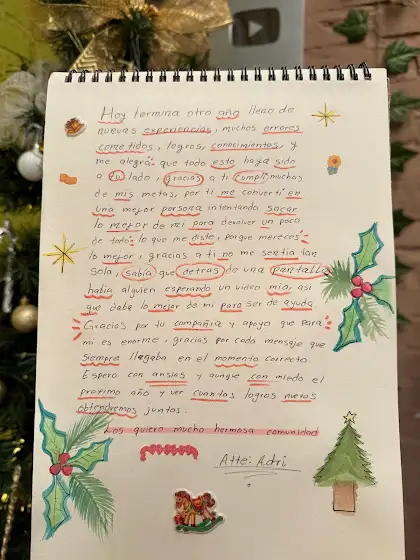 Hoy termina otro año lleno de
nuevas experiencias, muchos errores
cometidos, logros, conocimientos, y
me alegra que todo esto haya sido
a tu lado, gracias a ti cumpli muchas
de mis metas, por ti me converti en
una mejor persona intentando sacar
lo mejor de mi para devolver un poco
de todo lo que me diste, porque mereces
lo mejor, gracias a ti no me sentia tan
sola, sabia que detras de una pantalla
habia alguien esperando un video mio, asi
que daba lo mejor de mi para ser de ayuda
Gracias por tu compañia y apoyo que para
mi es enorme, gracias por cada mensaje que
siempre llegaba en el momento correcto.
Espero con ansias y aunque con miedo el
proximo año y ver cuantos logros nuevos
obtendremos juntos.
Los quiero mucho hermosa comunidad
Atte: Adri